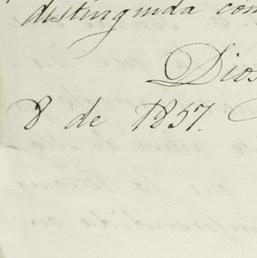 distinguida con
Dios
8 de 1857.